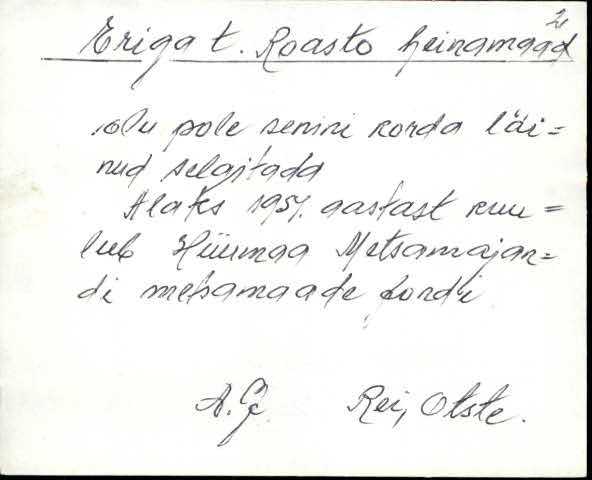 2
Eriga t. Roasto heinamaad
Olu pole senini korda läi=
nud selgitada
Alates 1957. aastast kuu=
lub Hiiumaa Metsamajan=
di metsamaade fondi
A.G Rei, Otste.